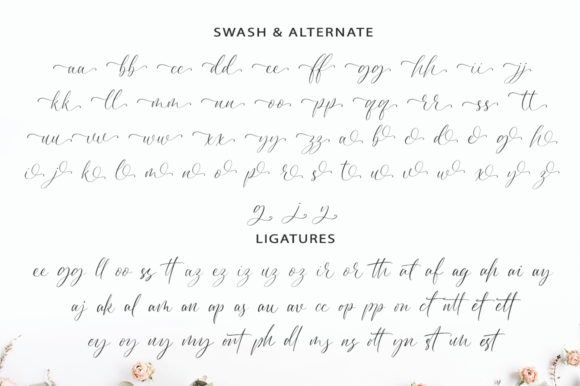 SWASH & ALTERNATE
aa bb cc dd ee ff gg hh ii jj
kk ll mm nn oo pp qq rr ss tt
uu vv ww xx yy zz a b c d e g h
i j k l m n o p r s t u v w x y z
g j y
LIGATURES
ee gg ll oo ss tt az ez iz uz oz ir or th at af ag ah ai ay
aj ak al am an ap as au av cc op pp on ct ntt et ett
ey oy uy my ont ph dl ms ns ott yn st un est